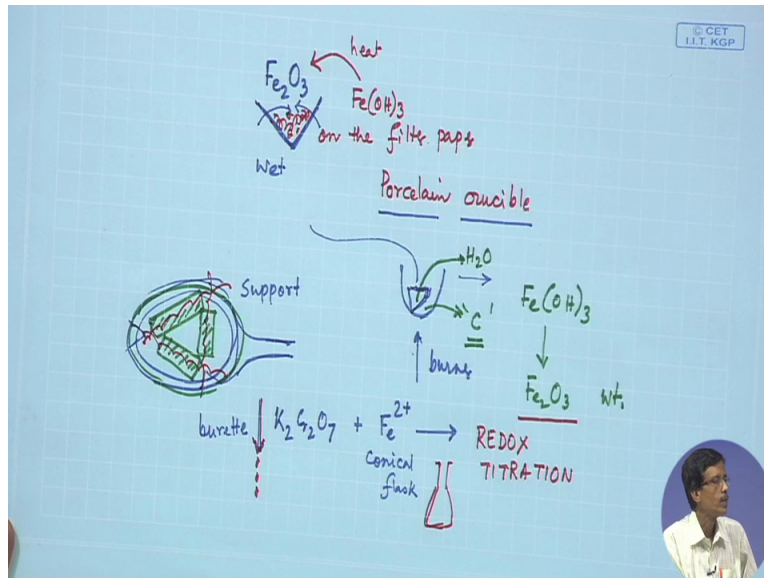 © CET
I.I.T. KGP
heat
Fe2O3
Fe(OH)3
on the filter pape
Wet
Porcelain crucible
H2O
Support
'C'
Fe(OH)3
burns
Fe2O3 wt.
burette K2Cr2O7 + Fe2+ → REDOX
TITRATION
conical
flask